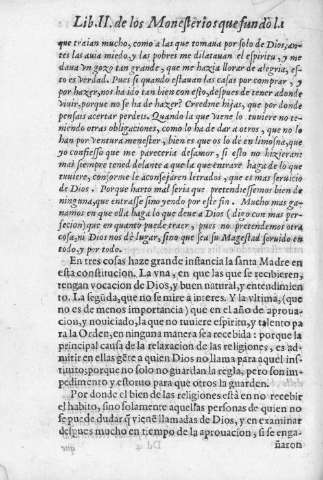 Lib.II. de los Monesterios que fundò la
que traian mucho, como a las que tomaua por solo de Dios, an-
tes las auia miedo, y las pobres me dilatauan el espiritu, y me
daua vn gozo tan grande, que me hazia llorar de alegria, es-
to es verdad. Pues si quando estauan las casas por comprar, y
por hazer, nos ha ido tan bien con esto, despues de tener adonde
viuir, porque no se ha de hazer? Creedme hijas, que por donde
pensais acertar perdeis. Quando la que viene lo tuuiere no te-
niendo otras obligaciones, como lo ha de dar a otros, que no lo
han por ventura menester, bien es que os lo de en limosna, que
yo confiesso que me pareceria desamor, si esto no hizieran:
mas siempre tened delante a que la que entrare haga de lo que
tuuiere, conforme le aconsejaren letrados, que es mas seruicio
de Dios. Porque harto mal seria que pretendiessemos bien de
ninguna, que entrasse sino yendo por este fin. Mucho mas ga-
namos en que ella haga lo que deue a Dios (digo con mas per-
fecion) que en quanto puede traer, pues no pretendemos otra
cosa, ni Dios nos dè lugar, sino que sea su Magestad seruido en
todo, y por todo.
En tres cosas haze grande instancia la santa Madre en
esta constitucion. La vna, en que las que se recibieren,
tengan vocacion de Dios, y buen natural, y entendimien
to. La segũda, que no se mire a interes. Y la vltima, (que
no es de menos importancia) que en el año de aproua-
cion, y nouiciado, la que no tuuiere espiritu, y talento pa
ra la Orden, en ninguna manera sea recebida: porque la
principal causa de la relaxacion de las religiones, es ad-
mitir en ellas gẽte a quien Dios no llama para aquel ins-
tituto; porque no solo no guardan la regla, pero son im-
pedimento y estoruo para que otros la guarden.
Por donde el bien de las religiones està en no recebir
el habito, sino solamente aquellas personas de quien no
se puede dudar q̃ viene llamadas de Dios, y en examinar
despues mucho en tiempo de la aprouacion, si se enga-
ñaron